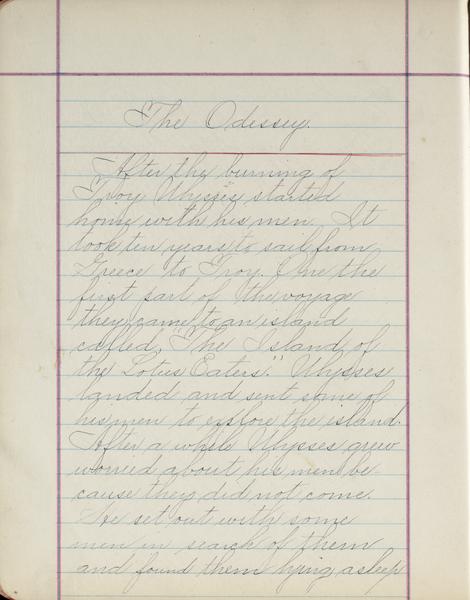 The Odessey.
After the burning of
Troy Ulysses started
home with his men. It
took ten years to sail from
Greece to Troy. One the
first part of the voyage
they came to an island
called, "The Island of
the Lotus Eaters." Ulysses
landed and sent some of
his men to explore the island.
After a while Ulysses grew
worried about his men be-
cause they did not come.
He set out with some
men in search of them
and found them lying asleep